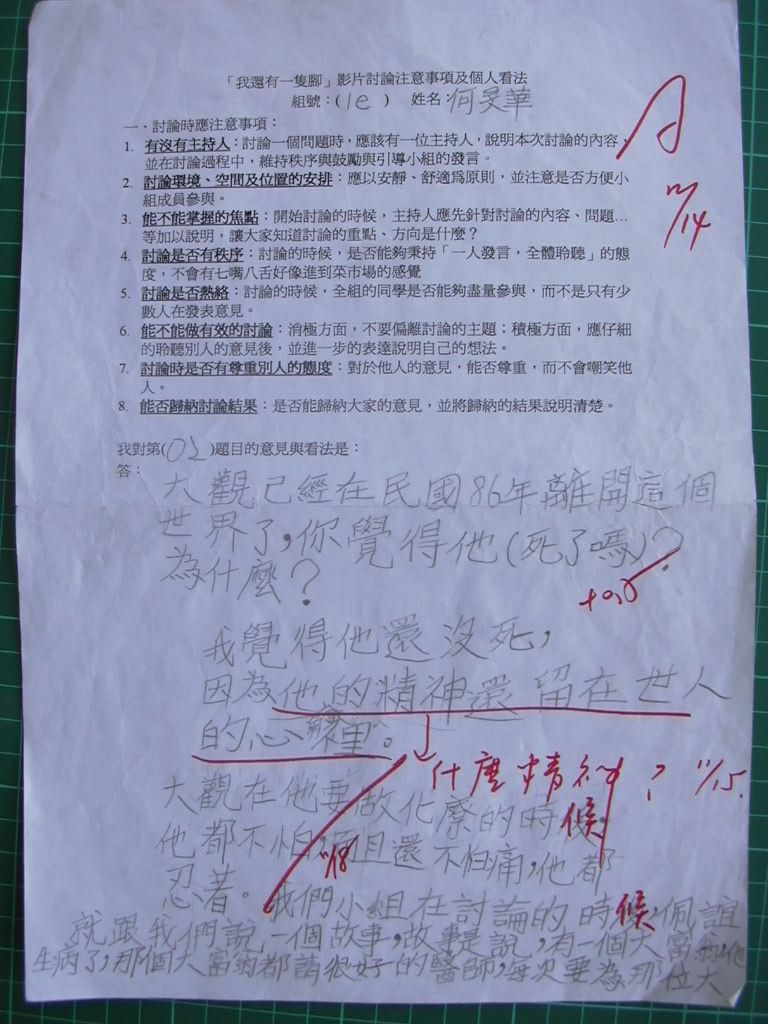 「我還有一隻腳」影片討論注意事項及個人看法
組號：(1e) 姓名：何旻華
A
11/14
一、討論時應注意事項：
1. 有沒有主持人：討論一個問題時，應該有一位主持人，說明本次討論的內容，
並在討論過程中，維持秩序與鼓勵與引導小組的發言。
2. 討論環境、空間及位置的安排：應以安靜、舒適為原則，並注意是否方便小
組成員參與。
3. 能不能掌握的焦點：開始討論的時候，主持人應先針對討論的內容、問題…
等加以說明，讓大家知道討論的重點、方向是什麼？
4. 討論是否有秩序：討論的時候，是否能夠秉持「一人發言，全體聆聽」的態
度，不會有七嘴八舌好像進到菜市場的感覺
5. 討論是否熱絡：討論的時候，全組的同學是否能夠盡量參與，而不是只有少
數人在發表意見。
6. 能不能做有效的討論：消極方面，不要偏離討論的主題；積極方面，應仔細
的聆聽別人的意見後，並進一步的表達說明自己的想法。
7. 討論時是否有尊重別人的態度：對於他人的意見，能否尊重，而不會嘲笑他
人。
8. 能否歸納討論結果：是否能歸納大家的意見，並將歸納的結果說明清楚。
我對第(02)題目的意見與看法是：
答：
大觀已經在民國86年離開這個
世界了,你覺得他(死了嗎)?
為什麼？
我覺得他還沒死，
因為他的精神還留在世人
的心裡。
什麼精神？ 11/15.
大觀在他要做化療的時候,
他都不怕,而且還不怕痛,他都
忍著。我們小組在討論的時候,佩誼
就跟我們說一個故事,故事是說,有一個大富翁,他
生病了,那個大富翁都請很好的醫師,每次要為那位大